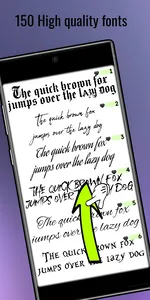 150 High quality fonts
1
The quick brown fox
jumps over the lazy dog
2
the quick brown fox
jumps over the lazy dog
3
The quick brown fox
jumps over the lazy dog
4
THE QUICK BROWN FOX
JUMPS OVER THE LAZY DOG
5
The quick brown fox
jumps over the lazy dog
6
THE QUICK BROWN FOX
JUMPS OVER THE LAZY DOG